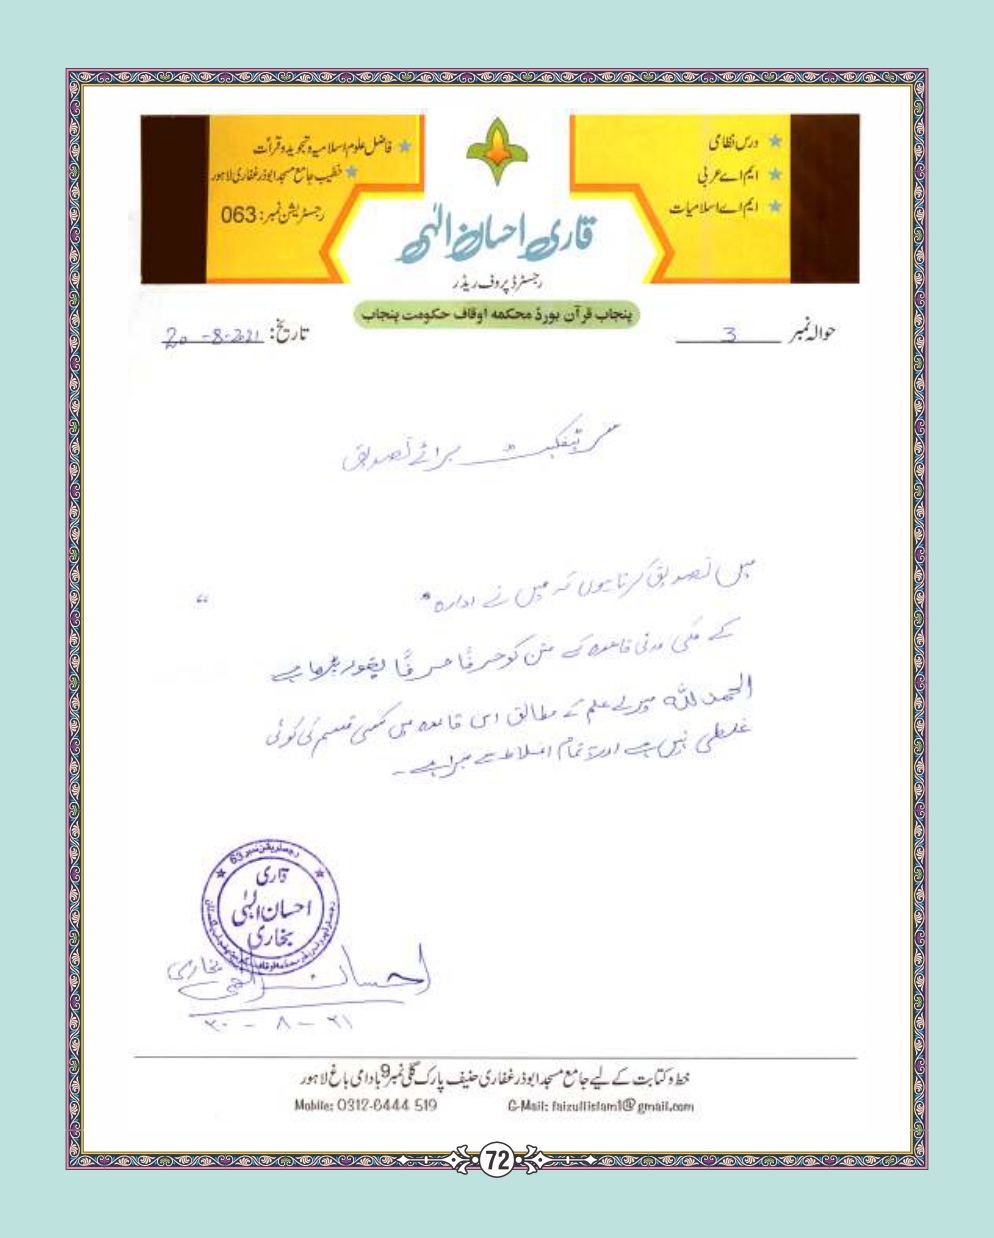 ★ درس نظامی
★ ایم اے عربی
★ ایم اے اسلامیات
★ فاضل علوم اسلامیہ و تجوید و قرأت
★ خطیب جامع مسجد ابوذر غفاری لاہور
رجسٹریشن نمبر: 063
قاری احسان الٰہی
رجسٹرڈ پروف ریڈر
پنجاب قرآن بورڈ محکمہ اوقاف حکومت پنجاب
حوالہ نمبر 3
تاریخ: 20-8-2021
سرٹیفکیٹ برائے تصدیق
میں تصدیق کرتا ہوں کہ میں نے ادارہ " "
کے مکی مدنی قاعدہ کے متن کو حرفاً حرفاً بغور پڑھا ہے
الحمد للہ میرے علم کے مطابق اس قاعدہ میں کسی قسم کی کوئی
غلطی نہیں ہے اور یہ تمام اغلاط سے مبرا ہے۔
رجسٹریشن نمبر 63
قاری
احسان الٰہی
بخاری
احسان الٰہی بخاری
۲۰ - ۸ - ۲۱
خط و کتابت کے لیے جامع مسجد ابوذر غفاری حنیف پارک گلی نمبر 9 بادامی باغ لاہور
Mobile: 0312-6444 519
G-Mail: faizulislam1@gmail.com
72